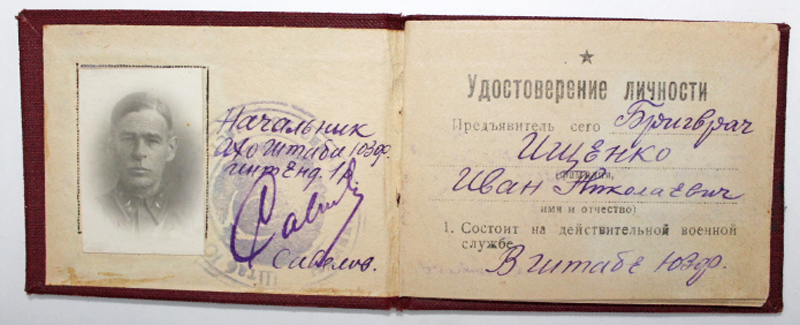 Начальник
АХО Штаба ЮЗФ.
инт Енд. 1 р.
Савелов.
Удостоверение личности
Предъявитель сего Бригврач
Ищенко
(фамилия,
Иван Николаевич
имя и отчество)
1. Состоит на действительной военной
службе
В штабе ЮЗФ.